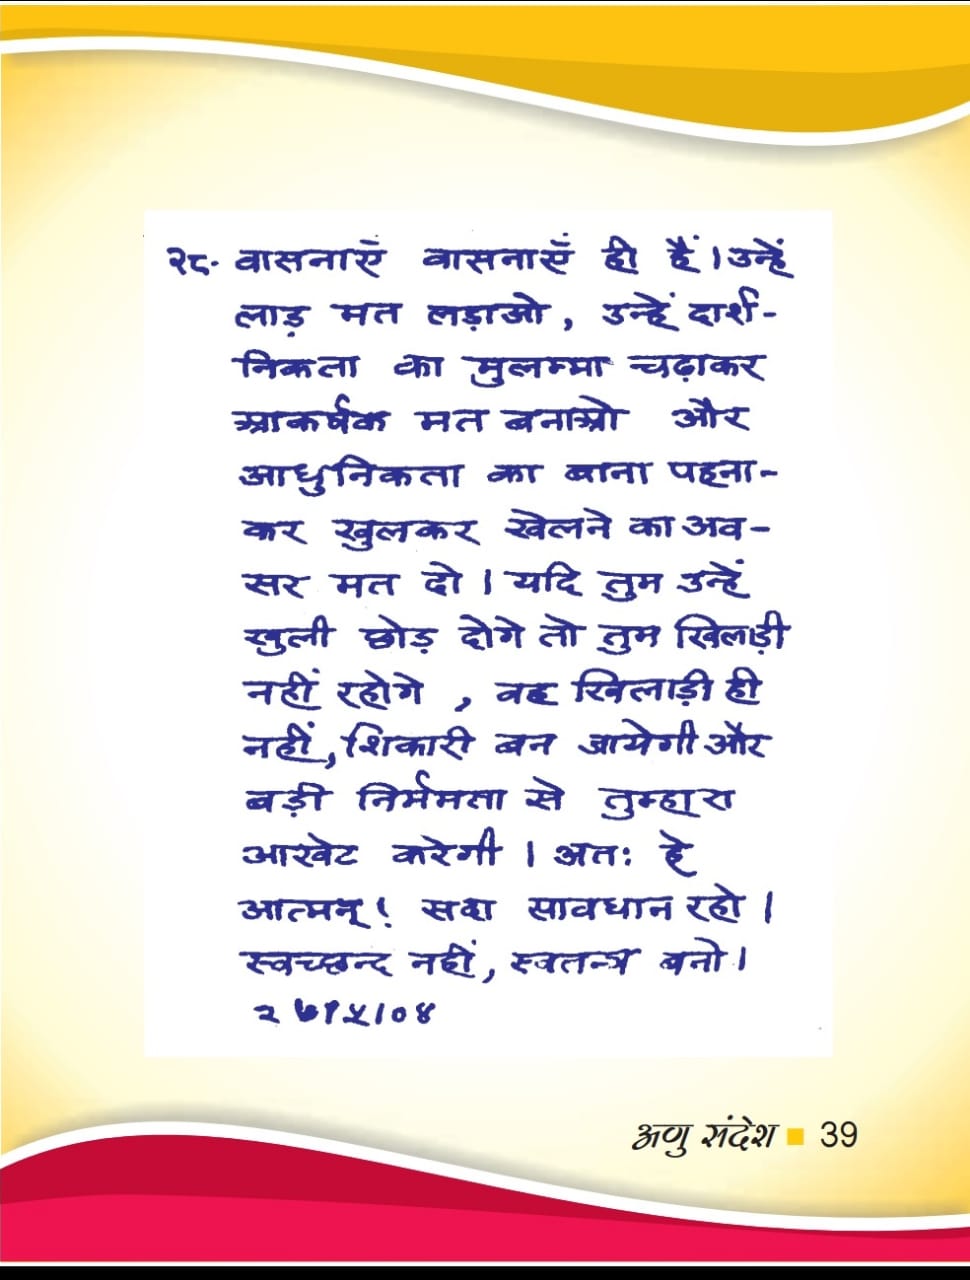 २८. वासनाएँ वासनाएँ ही हैं । उन्हें
लाड़ मत लड़ाओ, उन्हें दार्श-
निकता का मुलम्मा चढ़ाकर
आकर्षक मत बनाओ और
आधुनिकता का बाना पहना-
कर खुलकर खेलने का अव-
सर मत दो । यदि तुम उन्हें
खुली छोड़ दोगे तो तुम खिलाड़ी
नहीं रहोगे , वह खिलाड़ी ही
नहीं, शिकारी बन जायेगी और
बड़ी निर्ममता से तुम्हारा
आखेट करेगी । अतः हे
आत्मन् ! सदा सावधान रहो ।
स्वच्छन्द नहीं, स्वतन्त्र बनो ।
२७।५।०४
अणु संदेश 39